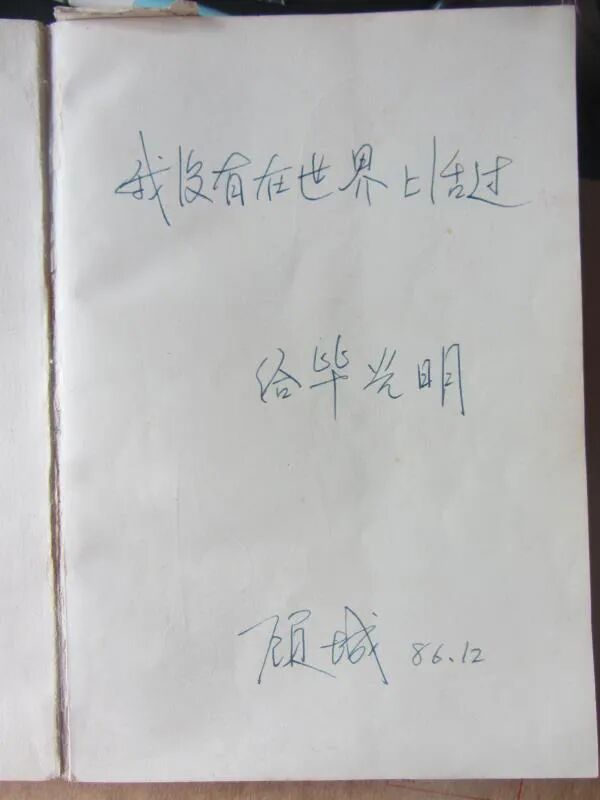 我没有在世界上活过
给毕光明
顾城 86.12